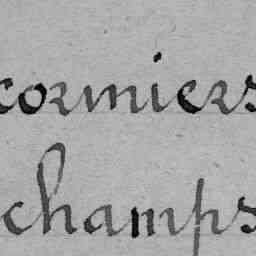 cormiers
champs